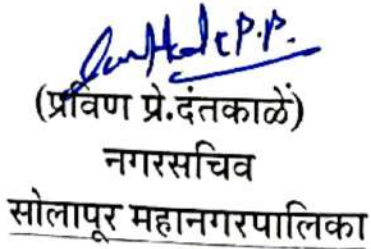 (प्रविण प्रे.दंतकाळें)
नगरसचिव
सोलापूर महानगरपालिका